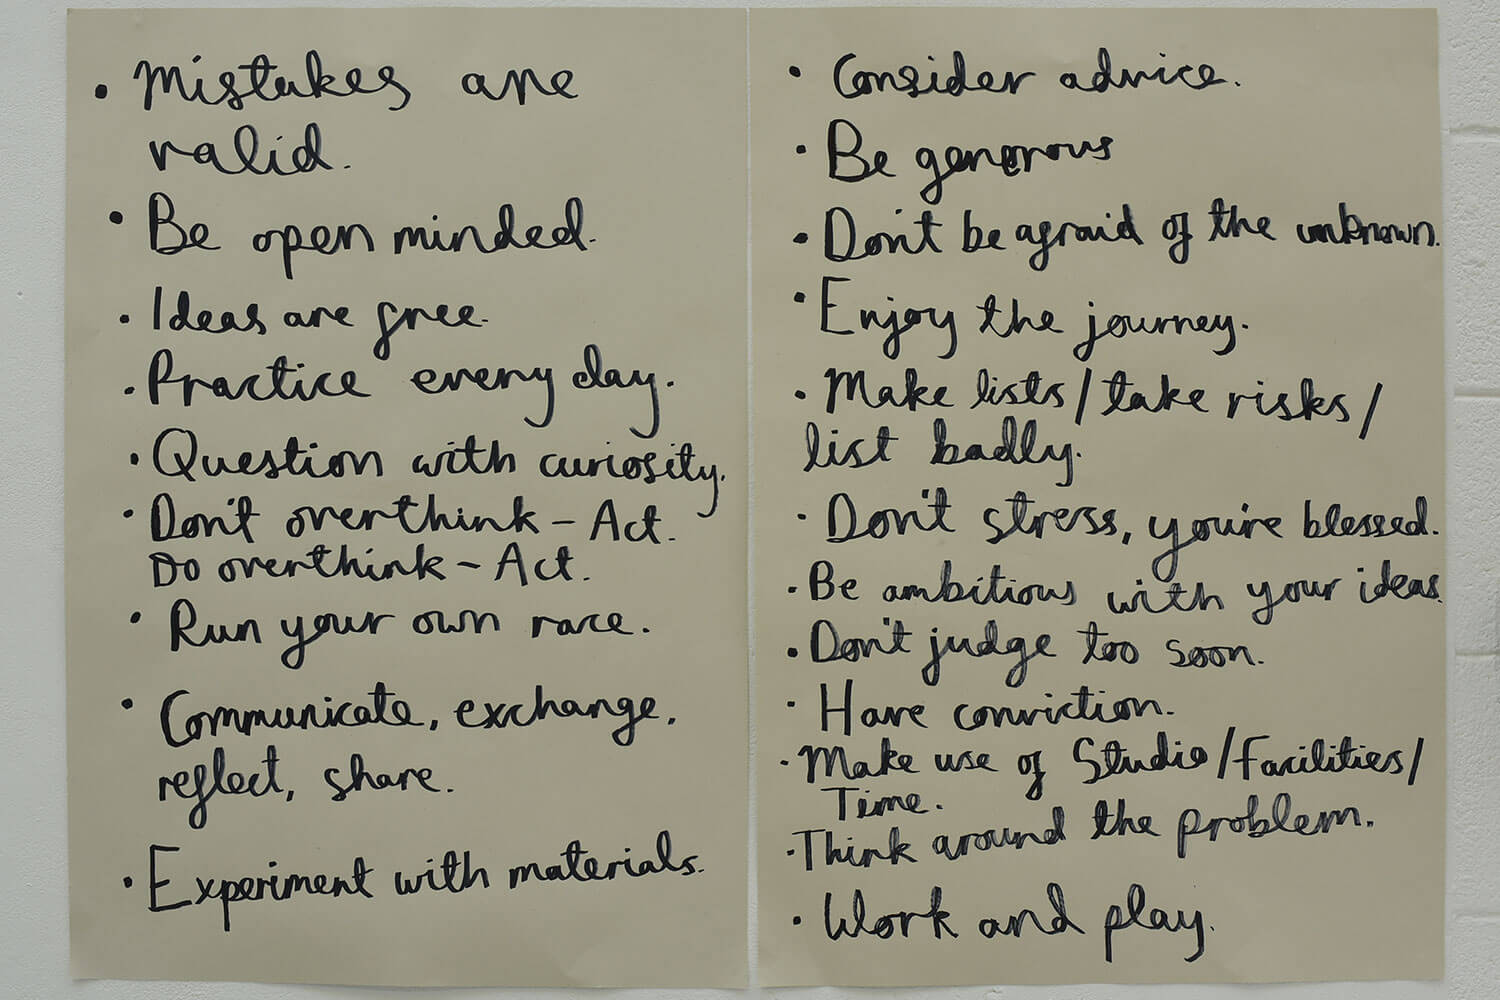 • Mistakes are
valid.
• Be open minded.
• Ideas are free.
• Practice every day.
• Question with curiosity.
• Don't overthink – Act.
Do overthink – Act.
• Run your own race.
• Communicate, exchange,
reflect, share.
• Experiment with materials.
• Consider advice.
• Be generous
• Don't be afraid of the unknown.
• Enjoy the journey.
• Make lists/take risks/
list badly.
• Don't stress, you're blessed.
• Be ambitious with your ideas.
• Don't judge too soon.
• Have conviction.
• Make use of Studio/Facilities/
Time.
• Think around the problem.
• Work and play.